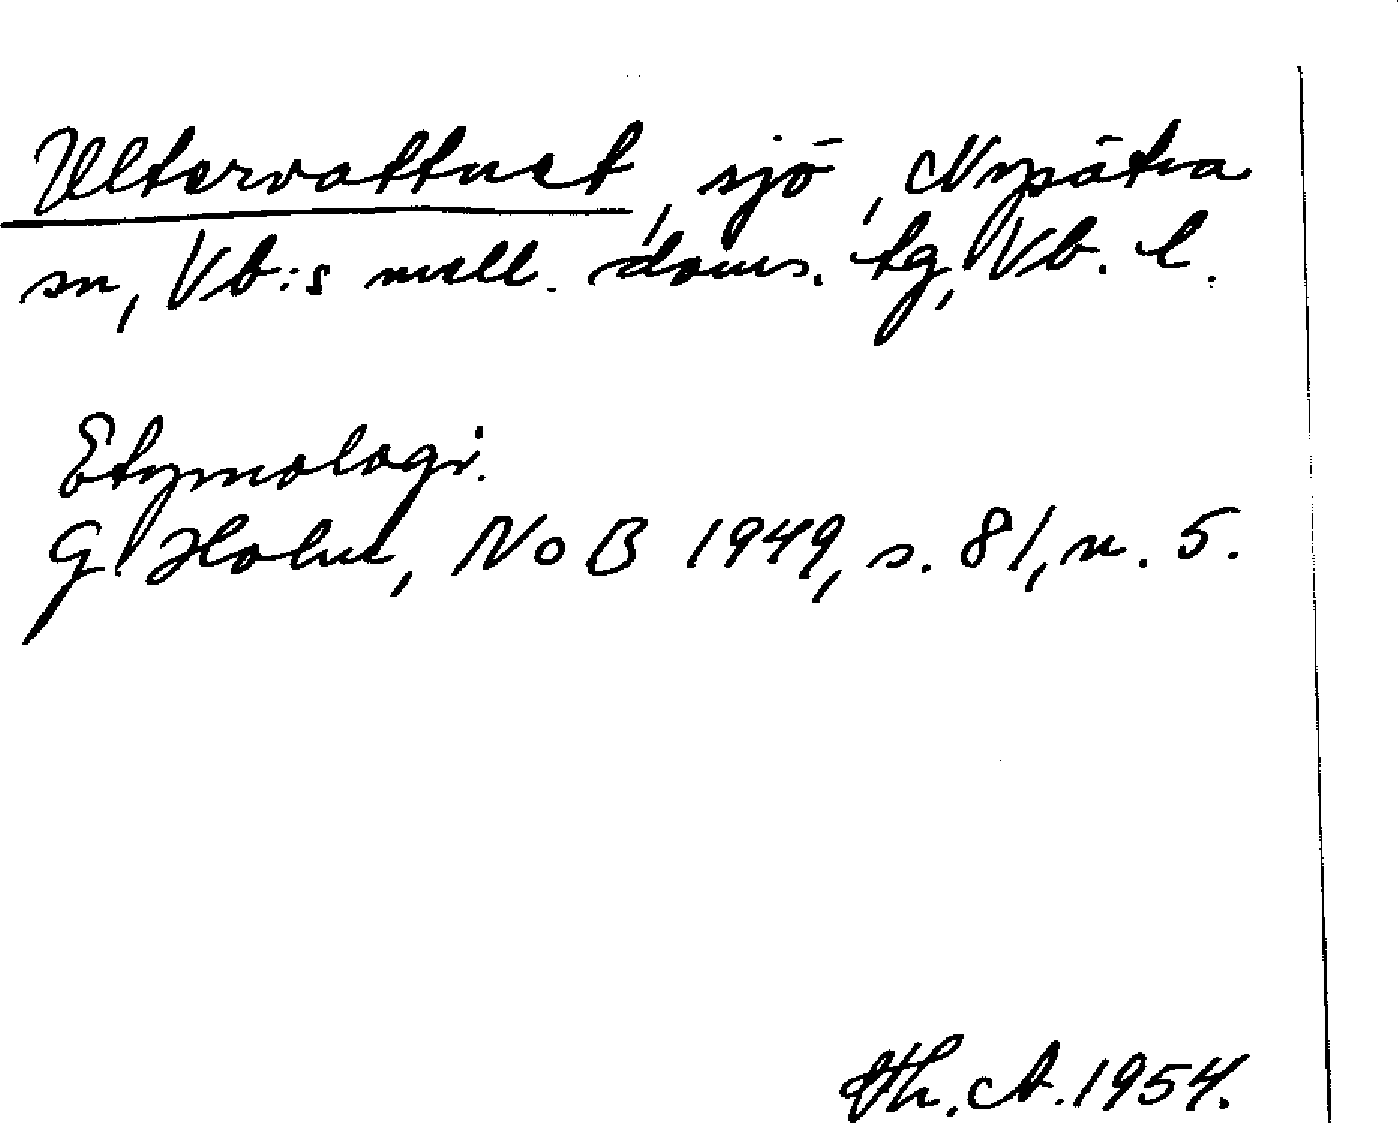 Ultervattnet, sjö, Nysätra
sn, Vb:s mell. doms. tg, Vb. l.
Etymologi.
G. Holm, NoB 1949, s. 81, n. 5.
Th. A. 1954.